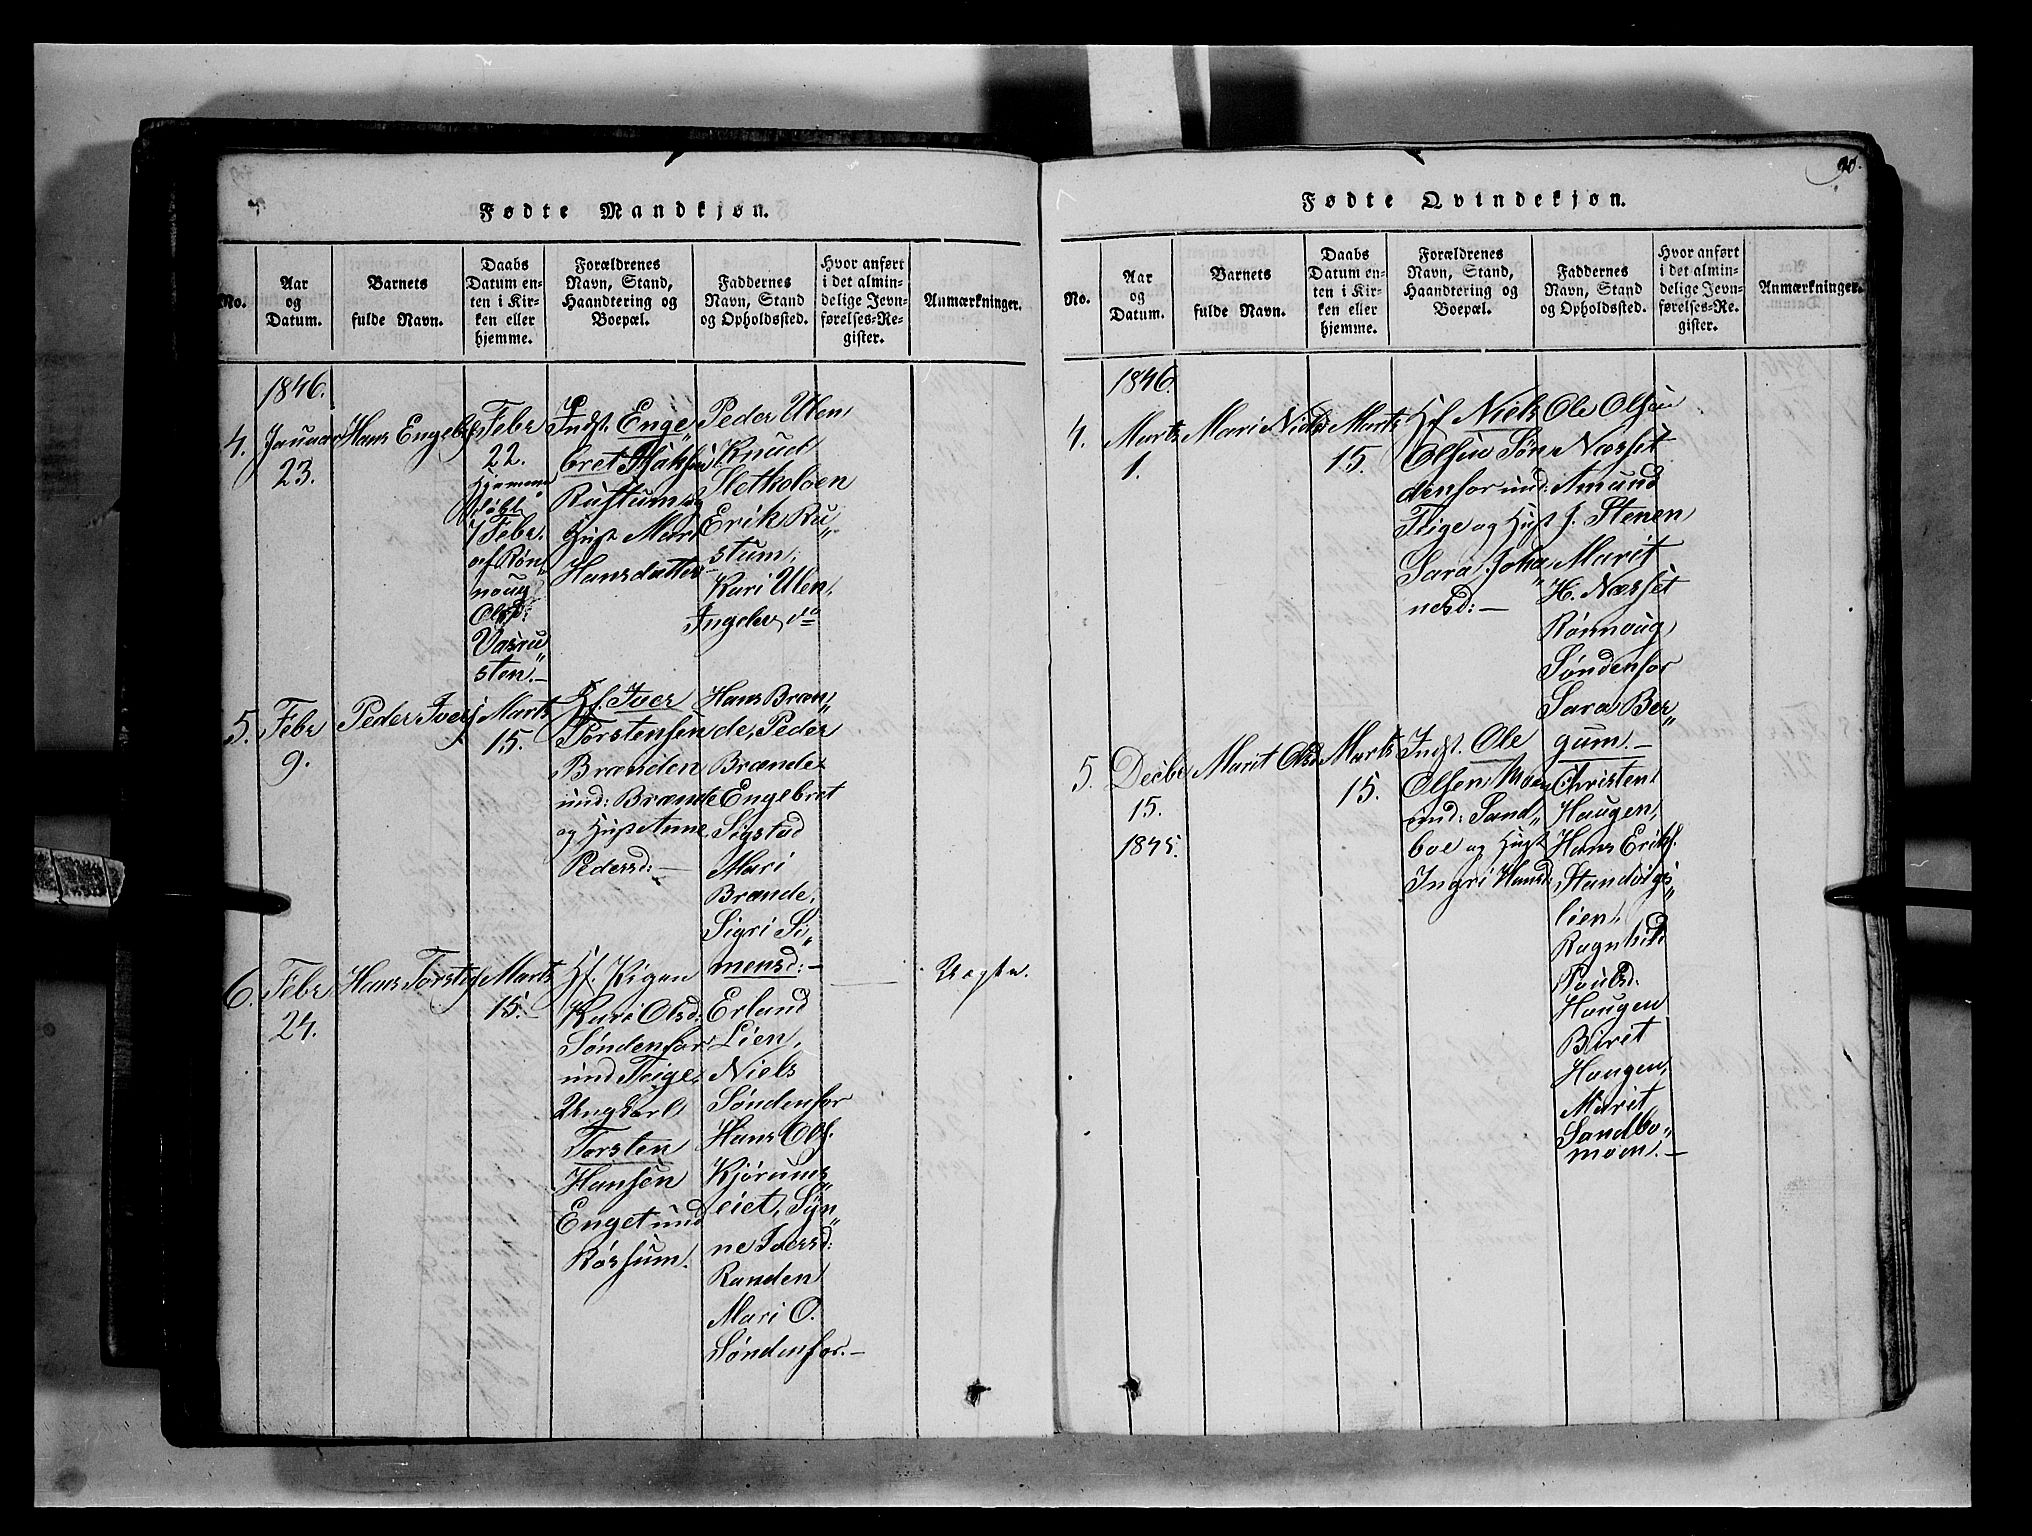 Fødte Mandkjøn.
No.
Aar
og
Datum.
Barnets
fulde Navn.
Daabs
Datum en-
ten i Kir-
ken eller
hjemme.
Forældrenes
Navn, Stand,
Haandtering og
Boepæl.
Faddernes
Navn, Stand
og Opholdssted.
Hvor anført
i det almin-
delige Jevn-
førelses-Re-
gister.
Anmærkninger.
1846.
4.
Januar
23.
Hans Engebr
Febr
22.
Hjemme
døbt
1 Febr.
af Røn
noug
Olsd:
Vasru
sten.-
Indst. Enge
bret
Rustum og
Hust Mari
Hansdatter
Peder Ulen
Knud
Sletholøen
Erik Ru„
stum,
Kari Ulen,
Ingebr do
5.
Febr
9.
Peder Iver
Marts
15.
Hf. Iver
Torstensen
Brænden
und: Brænde
og Hust Anne
Pedersd:-
Hans Bræn„
de, Peder
Brænde
Engebret
Sigstad
Mari
Brænde,
Sigri Si„
mensd:-
6.
Febr
24.
Hans Torst
Marts
15.
Hf. Pigen
Kari Olsd:
Søndenfor
und Teige
Ungkarl
Torsten
Hansen
Enget und
Røssum.
Erland
Lien,
Niels
Søndenfor
Hans Ols.
Kjørums
eiet, Syn„
ne Iversd:
Randen
Mari O.
Søndenfor.-
Uægte.
90.
Fødte Qvindekjøn.
No.
Aar
og
Datum.
Barnets
fulde Navn.
Daabs
Datum en-
ten i Kir-
ken eller
hjemme.
Forældrenes
Navn, Stand,
Haandtering og
Boepæl.
Faddernes
Navn, Stand
og Opholdssted.
Hvor anført
i det almin-
delige Jevn-
førelses-Re-
gister.
Anmærkninger.
1846.
4.
Marts
1.
Mari Nielsd
Marts
15.
Hf Niels
Olsen Søn
denfor und:
Teige og Hust
Sara Joha„
nesd:-
Ole Olsen
Næsset
Amund
J. Stenen
Marit
H. Næsset
Rønnoug
Søndenfor
Sara Ber„
gum.-
5.
Decbr
15.
1845.
Marit Olsd
Marts
15.
Indst. Ole
Olsen Moen
und: Sand„
boe og Hust
Ingri Hansd:
Christen
Haugen,
Hans Eriks.
Standvigs„
lien,
Ragnhild
Poulsd.
Haugen
Birit
Haugen,
Marit
Sandbo„
moen.-